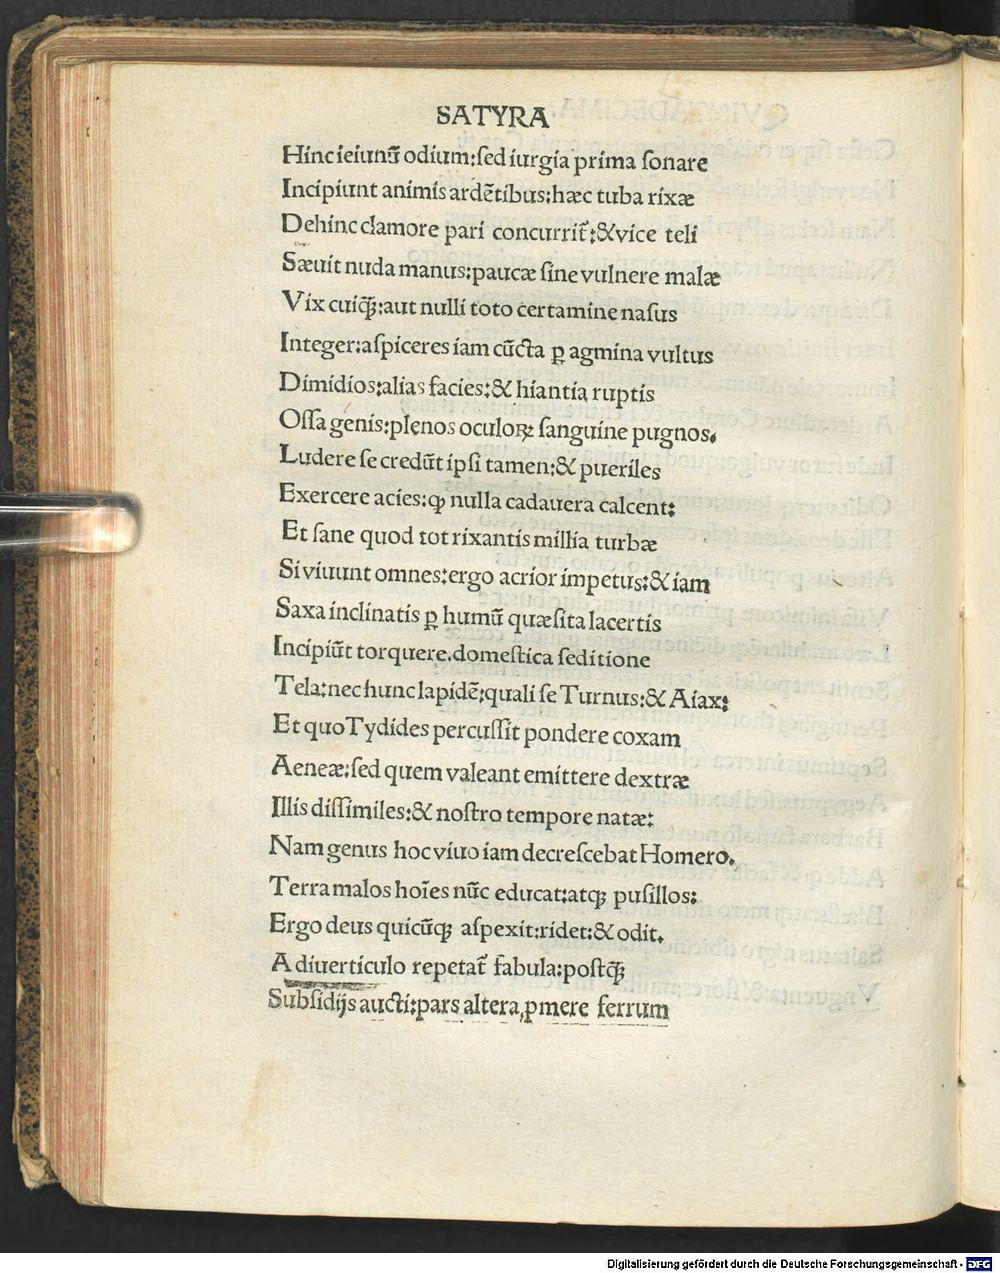 SATYRA
Hinc ieiunū odium:sed iurgia prima sonare
Incipiunt animis ardētibus:hæc tuba rixæ
Dehinc clamore pari concurrit᷑:&vice teli
Sæuit nuda manus:paucæ sine vulnere malæ
Vix cuiq̃:aut nulli toto certamine nasus
Integer:aspiceres iam cūcta ꝑ agmina vultus
Dimidios:alias facies:& hiantia ruptis
Ossa genis:plenos oculoꝝ sanguine pugnos.
Ludere se credūt ipsi tamen:& pueriles
Exercere acies:ꝙ nulla cadauera calcent:
Et sane quod tot rixantis millia turbæ
Si viuunt omnes:ergo acrior impetus:& iam
Saxa inclinatis ꝑ humū quæsita lacertis
Incipiūt torquere.domestica seditione
Tela:nec hunc lapidē:quali se Turnus:& Aiax:
Et quo Tydides percussit pondere coxam
Aeneæ:sed quem valeant emittere dextræ
Illis dissimiles:& nostro tempore natæ:
Nam genus hoc viuo iam decrescebat Homero.
Terra malos hoīes nūc educat:atq; pusillos:
Ergo deus quicūq; aspexit:ridet:& odit.
A diuerticulo repetat᷑ fabula:postq̃;
Subsidijs aucti:pars altera ꝓmere ferrum
Digitalisierung gefördert durch die Deutsche Forschungsgemeinschaft - DFG